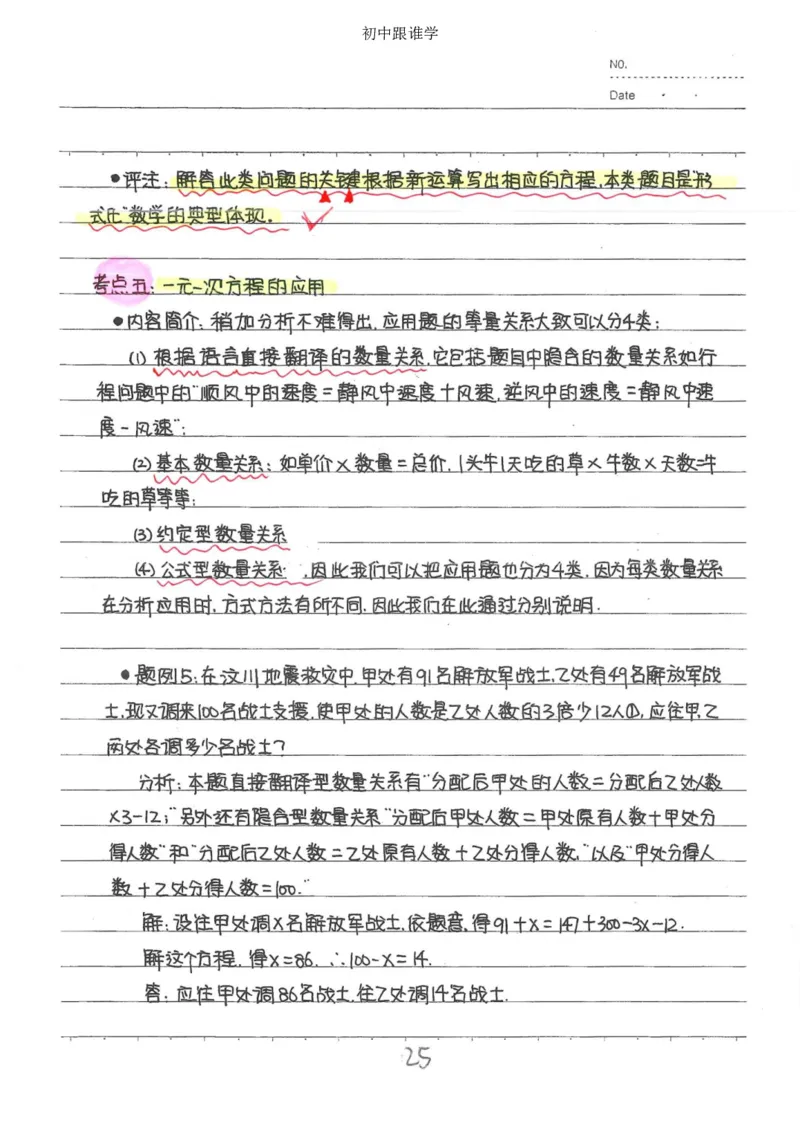 初中跟谁学
NO.
Date
•评注:解答此类问题的关键根据新运算写出相应的方程,本类题目是"形
式化"数学的典型体现。
考点五:一元一次方程的应用
•内容简介:稍加分析不难得出,应用题的等量关系大致可以分4类:
(1)根据语言直接翻译的数量关系,它包括题目中隐含的数量关系如行
程问题中的"顺风中的速度=静风中速度+风速,逆风中的速度=静风中速
度-风速";
(2)基本数量关系:如单价×数量=总价,1头牛1天吃的草×牛数×天数=牛
吃的草等等;
(3)约定型数量关系
(4)公式型数量关系 ,因此我们可以把应用题也分为4类,因为每类数量关系
在分析应用时,方式方法有所不同,因此我们在此通过分别说明.
•题例5:在汶川地震救灾中,甲处有91名解放军战士,乙处有49名解放军战
士,现又调来100名战士支援,使甲处的人数是乙处人数的3倍少12人①,应往甲.乙
两处各调多少名战士?
分析:本题直接翻译型数量关系有"分配后甲处的人数=分配后乙处人数
×3-12;"另外还有隐含型数量关系"分配后甲处人数=甲处原有人数+甲处分
得人数"和"分配后乙处人数=乙处原有人数+乙处分得人数,"以及"甲处分得人
数+乙处分得人数=100."
解:设往甲处调x名解放军战士,依题意,得91+x=147+300-3x-12.
解这个方程,得x=86. ∴100-x=14.
答:应往甲处调86名战士,往乙处调14名战士.
25